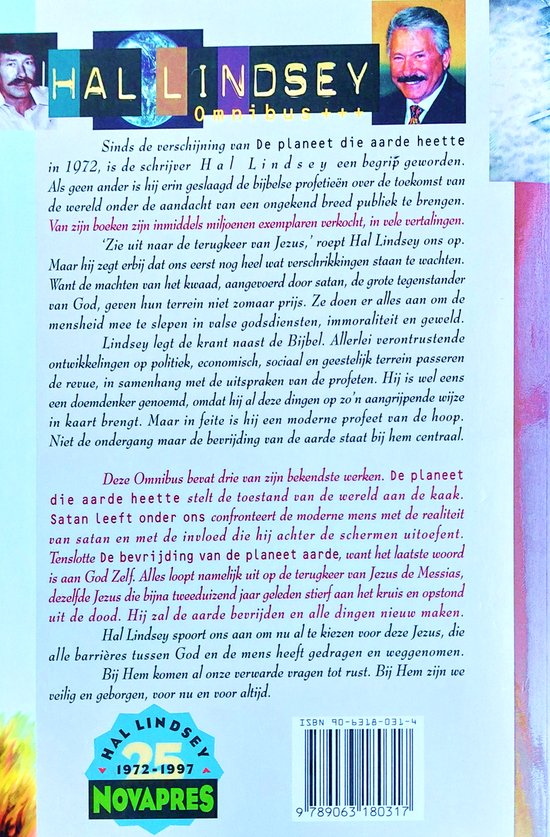 HAL LINDSEY
Omnibus +++
Sinds de verschijning van De planeet die aarde heette
in 1972, is de schrijver Hal Lindsey een begrip geworden.
Als geen ander is hij erin geslaagd de bijbelse profetieën over de toekomst van
de wereld onder de aandacht van een ongekend breed publiek te brengen.
Van zijn boeken zijn inmiddels miljoenen exemplaren verkocht, in vele vertalingen.
'Zie uit naar de terugkeer van Jezus,' roept Hal Lindsey ons op.
Maar hij zegt erbij dat ons eerst nog heel wat verschrikkingen staan te wachten.
Want de machten van het kwaad, aangevoerd door satan, de grote tegenstander
van God, geven hun terrein niet zomaar prijs. Ze doen er alles aan om de
mensheid mee te slepen in valse godsdiensten, immoraliteit en geweld.
Lindsey legt de krant naast de Bijbel. Allerlei verontrustende
ontwikkelingen op politiek, economisch, sociaal en geestelijk terrein passeren
de revue, in samenhang met de uitspraken van de profeten. Hij is wel eens
een doemdenker genoemd, omdat hij al deze dingen op zo'n aangrijpende wijze
in kaart brengt. Maar in feite is hij een moderne profeet van de hoop.
Niet de ondergang maar de bevrijding van de aarde staat bij hem centraal.
Deze Omnibus bevat drie van zijn bekendste werken. De planeet
die aarde heette stelt de toestand van de wereld aan de kaak.
Satan leeft onder ons confronteert de moderne mens met de realiteit
van satan en met de invloed die hij achter de schermen uitoefent.
Tenslotte De bevrijding van de planeet aarde, want het laatste woord
is aan God Zelf. Alles loopt namelijk uit op de terugkeer van Jezus de Messias,
dezelfde Jezus die bijna tweeduizend jaar geleden stierf aan het kruis en opstond
uit de dood. Hij zal de aarde bevrijden en alle dingen nieuw maken.
Hal Lindsey spoort ons aan om nu al te kiezen voor deze Jezus, die
alle barrières tussen God en de mens heeft gedragen en weggenomen.
Bij Hem komen al onze verwarde vragen tot rust. Bij Hem zijn we
veilig en geborgen, voor nu en voor altijd.
HAL LINDSEY
25
1972-1997
NOVAPRES
ISBN 90-6318-031-4
9 789063 180317